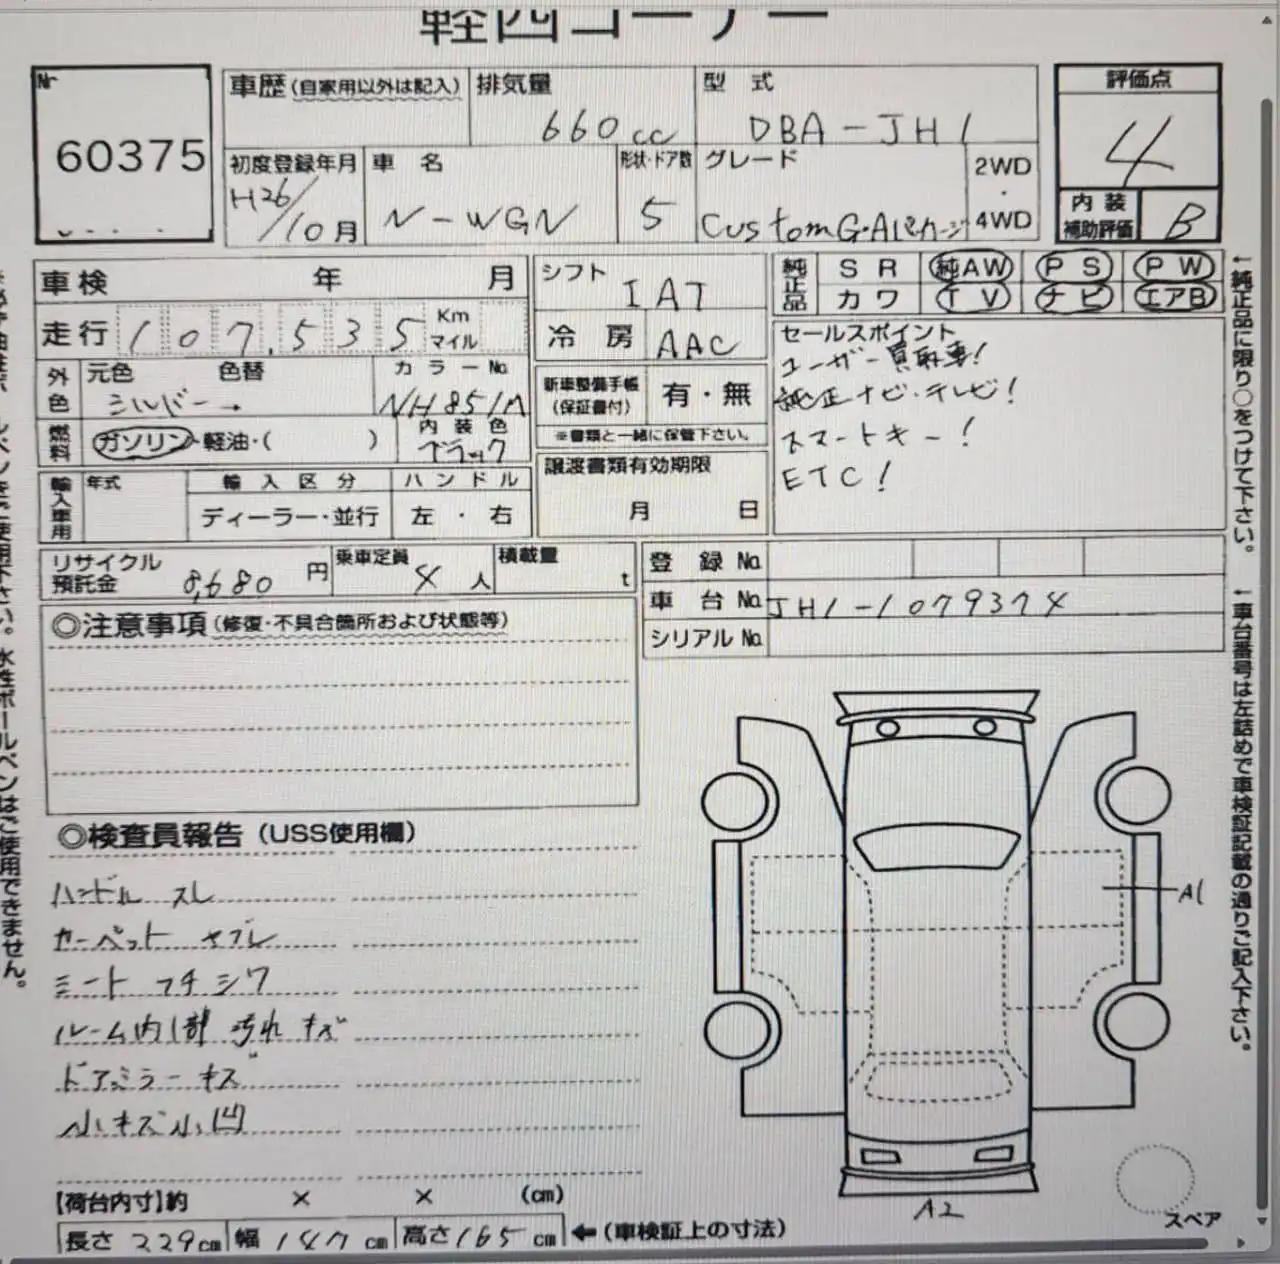 軽四コーナー
Nr
60375
車歴(自家用以外は記入)
排気量
660cc
型 式
DBA-JH1
評価点
4
初度登録年月
H26/10月
車 名
N-WGN
形状・ドア数
5
グレード
Custom G・Aパッケージ
2WD
・
4WD
内 装
補助評価
B
車検 年 月
走行 107,535 Km
マイル
シフト
IAT
冷 房
AAC
純正品
S R
純AW
P S
P W
カ ワ
T V
ナ ビ
エアB
外色
元色 色替
シルバー→
カラーNo.
NH851M
燃料
ガソリン・軽油・( )
内装色
ブラック
新車整備手帳
(保証書付)
有・無
※書類と一緒に保管下さい。
セールスポイント
ユーザー買取車!
純正ナビ・テレビ!
スマートキー!
ETC!
輸入車用
年式
輸入区分
ディーラー・並行
ハンドル
左・右
譲渡書類有効期限
月 日
リサイクル
預託金
8,680 円
乗車定員
4 人
積載量
t
登 録 No.
車 台 No. JH1-1079374
シリアル No.
◎注意事項(修復・不具合箇所および状態等)
◎検査員報告(USS使用欄)
ハンドル スレ
カーペット ヤブレ
シート コゲ シワ
ルーム内 汚れ キズ
ドアミラー キズ
小キズ小凹
A1
A2
スペア
【荷台内寸】約 × × (cm)
長さ 339cm 幅 147cm 高さ165cm ←(車検証上の寸法)
←純正品に限り○をつけて下さい。
←車台番号は左詰めで車検証記載の通りご記入下さい。
水性ボールペンはご使用できません。